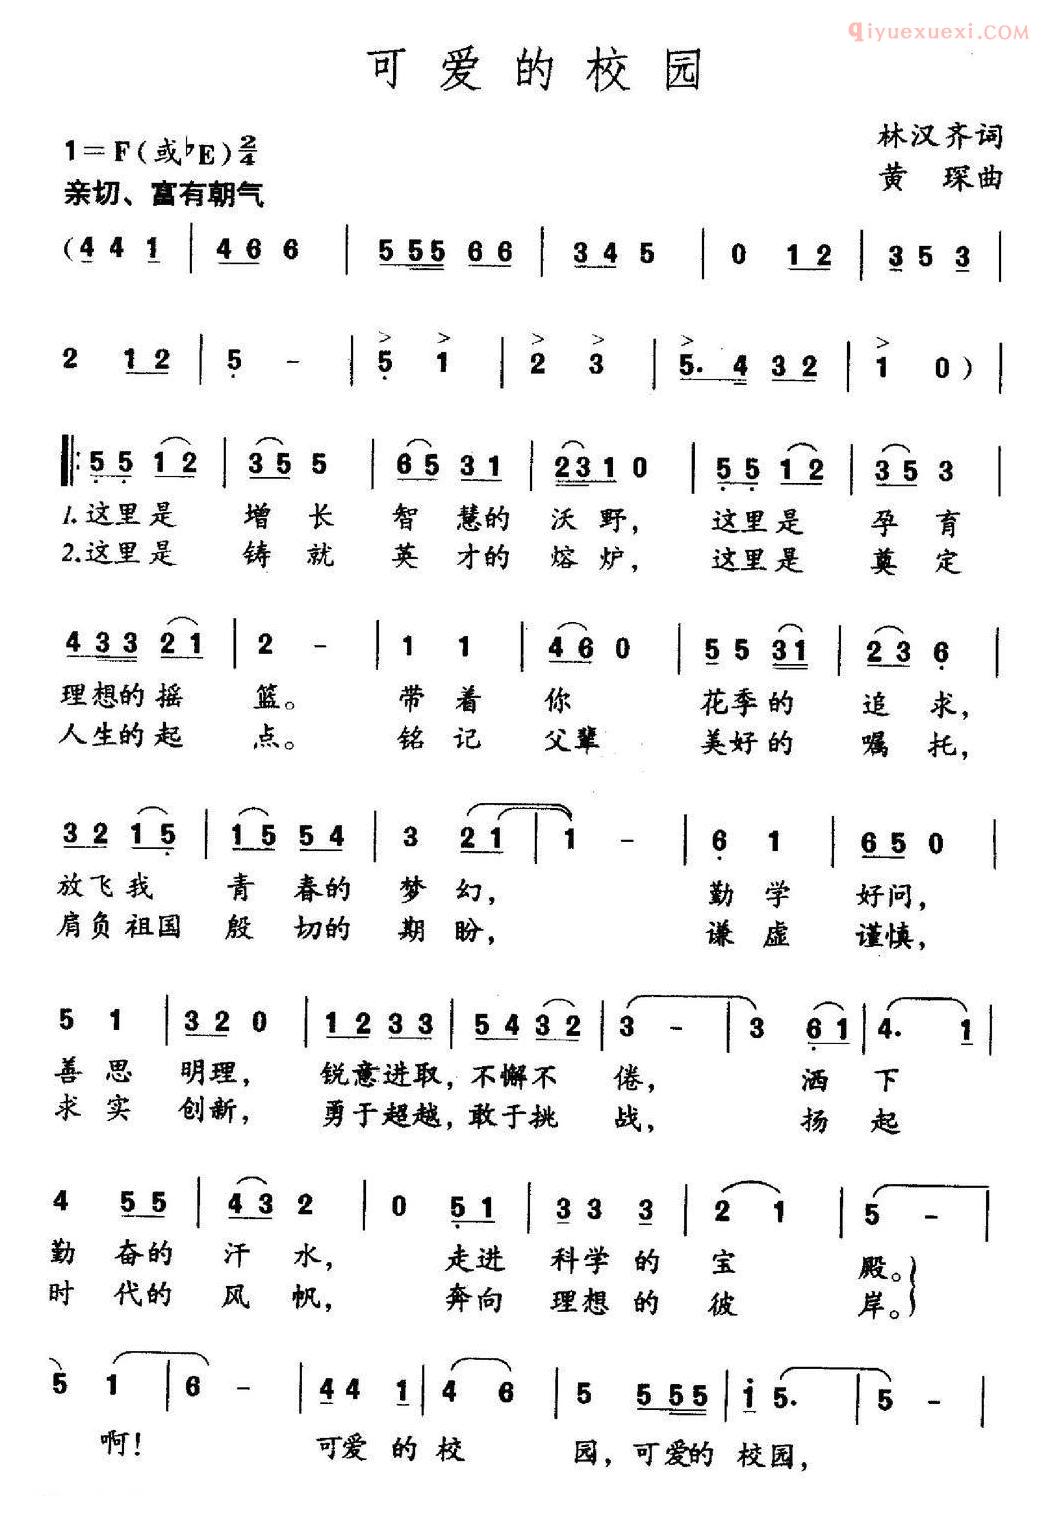 qiyuexuexi.COM
可爱的校园
1=F(或♭E)2/4
林汉齐词
亲切、富有朝气
黄 琛曲
(4 4 1 | 4 6 6 | 5 5 5 6 6 | 3 4 5 | 0 1 2 | 3 5 3 |
2 1 2 | 5 - | 5 1 | 2 3 | 5. 4 3 2 | 1 0 ) |
‖: 5 5 1 2 | 3 5 5 | 6 5 3 1 | 2 3 1 0 | 5 5 1 2 | 3 5 3 |
1.这里是 增 长 智 慧的 沃 野, 这里是 孕 育
2.这里是 铸 就 英 才的 熔 炉, 这里是 奠 定
4 3 3 2 1 | 2 - | 1 1 | 4 6 0 | 5 5 3 1 | 2 3 6 |
理想的摇 篮。 带 着 你 花季的 追 求,
人生的起 点。 铭 记 父辈 美好的 嘱 托,
3 2 1 5 | 1 5 5 4 | 3 2 1 | 1 - | 6 1 | 6 5 0 |
放飞我 青 春的 梦 幻, 勤 学 好问,
肩负祖国 殷 切的 期 盼, 谦 虚 谨慎,
5 1 | 3 2 0 | 1 2 3 3 | 5 4 3 2 | 3 - | 3 6 1 | 4. 1 |
善 思 明理, 锐意进取, 不懈不 倦, 洒 下
求 实 创新, 勇于超越, 敢于挑 战, 扬 起
4 5 5 | 4 3 2 | 0 5 1 | 3 3 3 | 2 1 | 5 - |
勤 奋的 汗 水, 走进 科学的 宝 殿。
时 代的 风 帆, 奔向 理想的 彼 岸。
5 1 | 6 - | 4 4 1 | 4 6 | 5 5 5 5 | i 5. | 5 - |
啊! 可爱 的 校 园, 可爱的 校园,